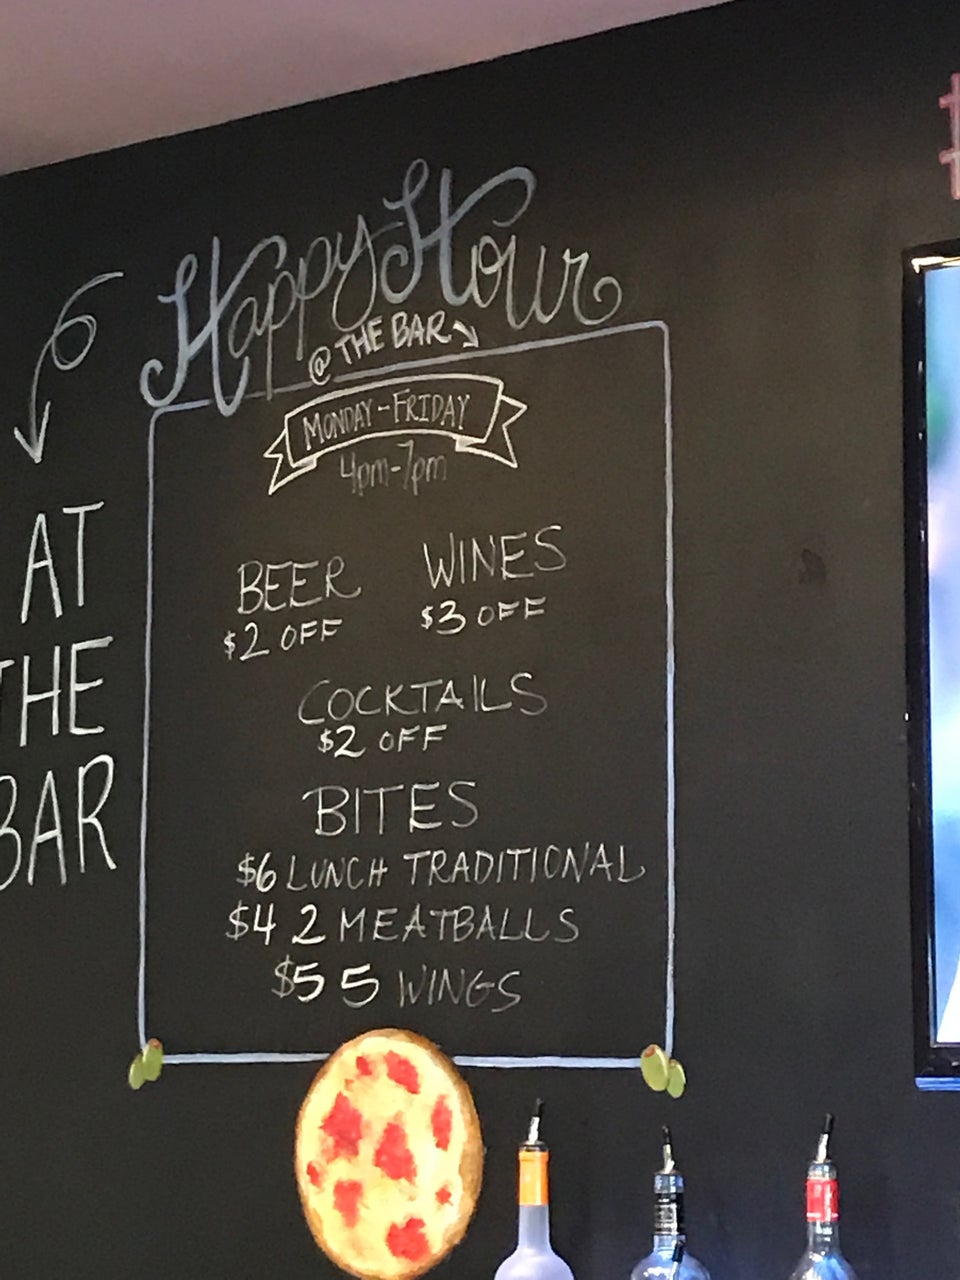 Happy Hour
@ THE BAR
MONDAY-FRIDAY
4pm-7pm
BEER WINES
$2 OFF $3 OFF
COCKTAILS
$2 OFF
BITES
$6 LUNCH TRADITIONAL
$4 2 MEATBALLS
$5 5 WINGS
AT
THE
BAR